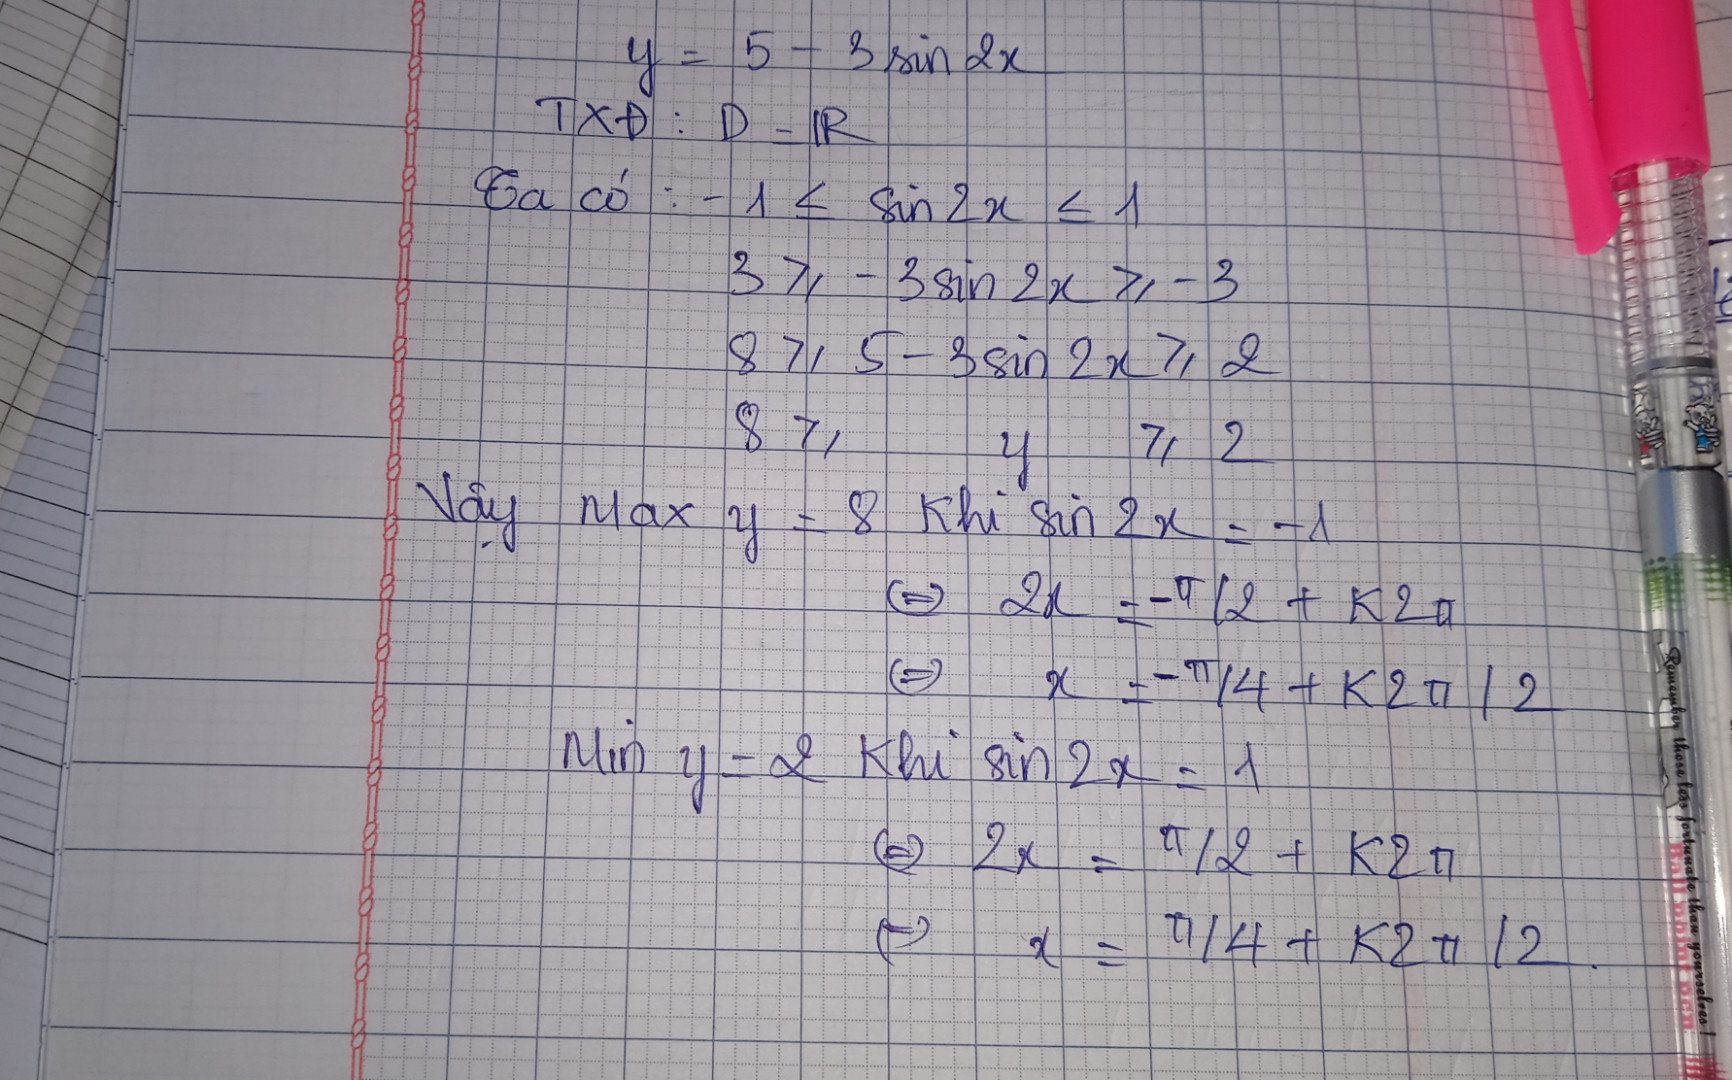 y = 5 - 3 sin 2x
TXĐ : D = ℝ
Ta có : -1 ≤ sin 2x ≤ 1
3 ≥ -3 sin 2x ≥ -3
8 ≥ 5 - 3 sin 2x ≥ 2
8 ≥ y ≥ 2
Vậy Max y = 8 Khi sin 2x = -1
⇔ 2x = -π/2 + K2π
⇔ x = -π/4 + K2π/2
Min y = 2 Khi sin 2x = 1
⇔ 2x = π/2 + K2π
⇔ x = π/4 + K2π/2.
Remember those less fortunate than yourselves !